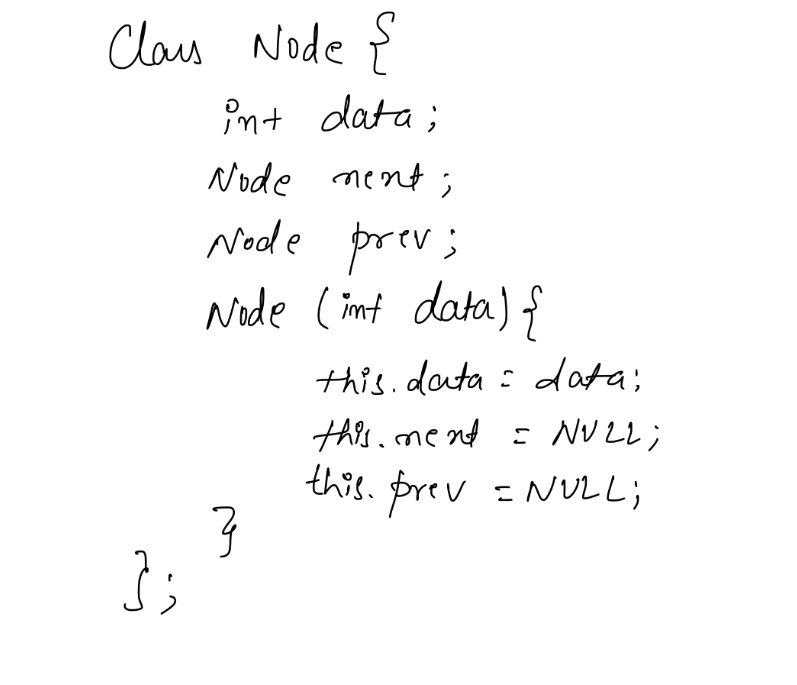 Class Node {
int data;
Node next;
Node prev;
Node (int data) {
this.data = data;
this.next = NULL;
this.prev = NULL;
}
};